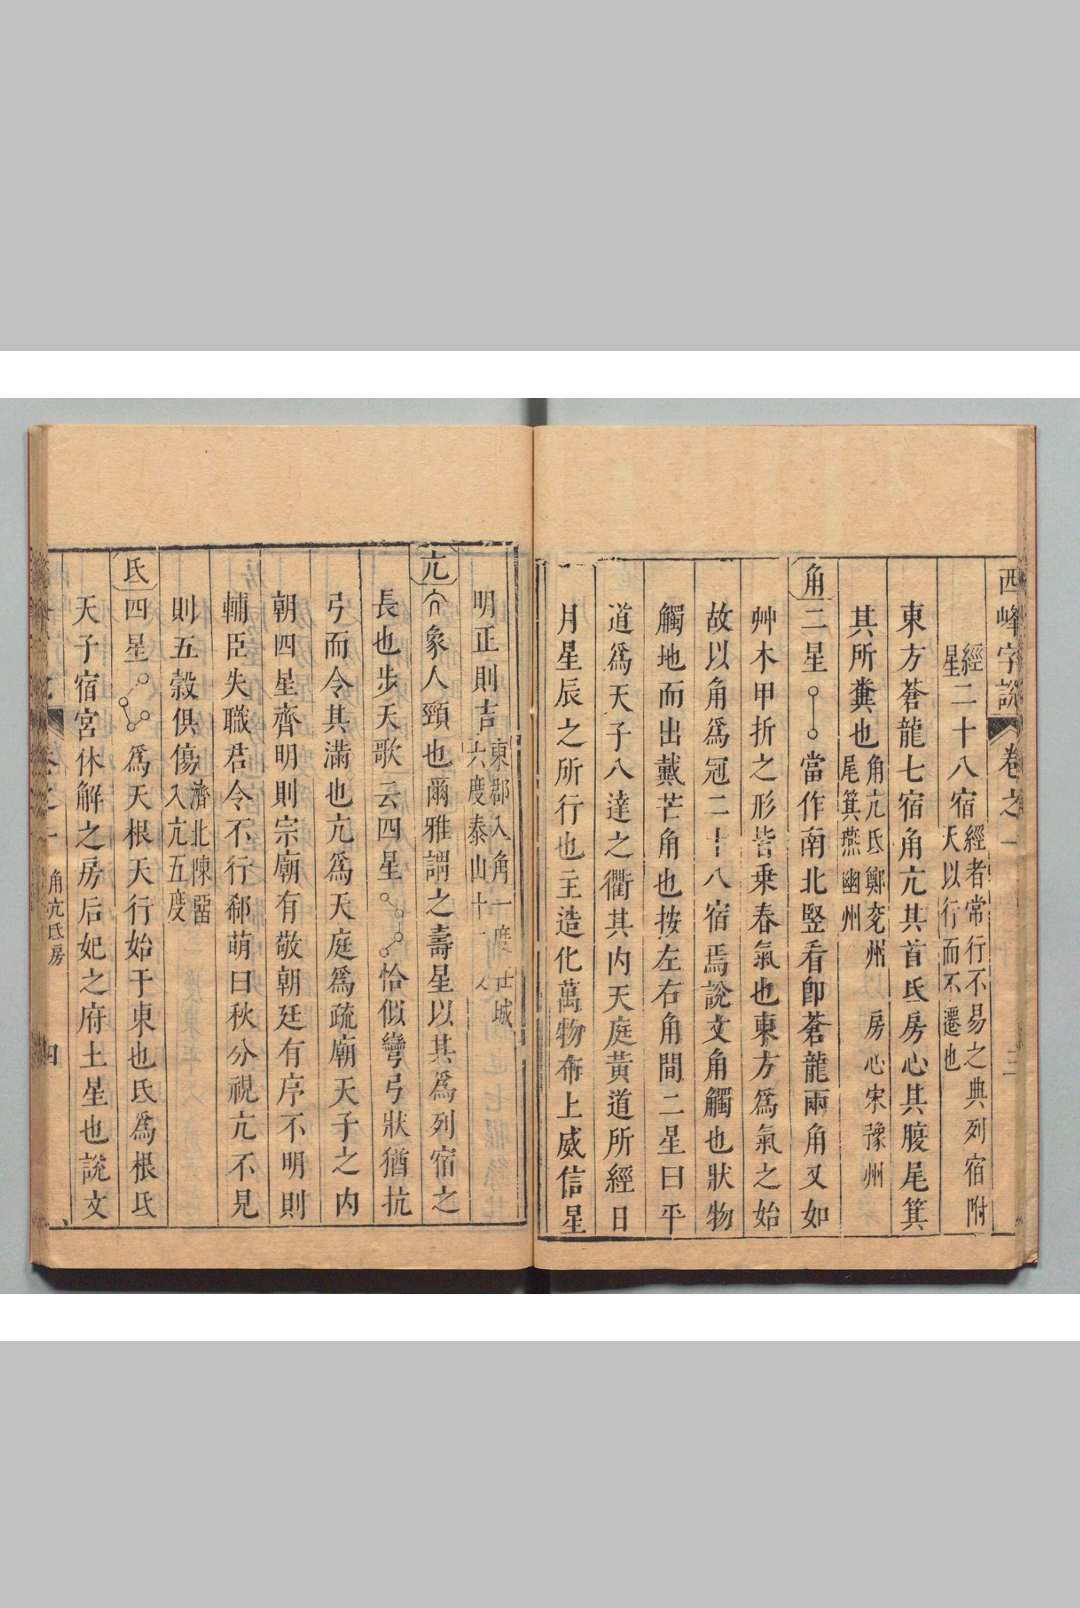 西峰字說 卷之一 三
經星 二十八宿 經者常行不易之典列宿附天以行而不遷也
東方蒼龍七宿角亢其首氐房心其腹尾箕
其所糞也 角亢氐鄭兗州 房心宋豫州 尾箕燕幽州
角 二星 當作南北竪看卽蒼龍兩角又如
艸木甲折之形皆乗春氣也東方爲氣之始
故以角爲冠二十八宿焉說文角觸也狀物
觸地而出戴芒角也按左右角間二星曰平
道爲天子八達之衢其内天庭黃道所經日
月星辰之所行也主造化萬物布上威信星
明正則吉 東郡入角一度 城六度泰山十二
亢 象人頸也爾雅謂之壽星以其爲列宿之
長也步天歌云四星 恰似彎弓狀猶抗
弓而令其滿也亢爲天庭爲疏廟天子之内
朝四星齊明則宗廟有敬朝廷有序不明則
輔臣失職君令不行郗萌曰秋分視亢不見
則五穀俱傷 濟北陳畱入亢五度
氐 四星 爲天根天行始于東也氐爲根氐
天子宿宮休解之房后妃之府土星也說文
卷之一 角亢氐房 四